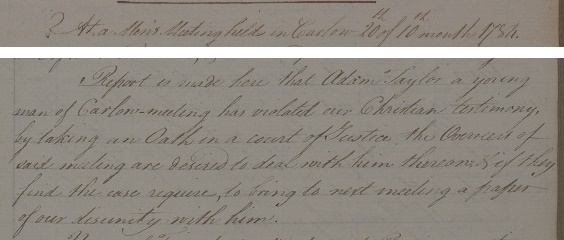 At a Mens Meeting held in Carlow 20th of 10th month 1784.
Report is made here that Adam Taylor a young
man of Carlow-meeting has violated our Christian testimony,
by taking an Oath in a court of Justice, the Overseers of
said meeting are desired to deal with him thereon, & if they
find the case require, to bring to next meeting a paper
of our disunity with him.